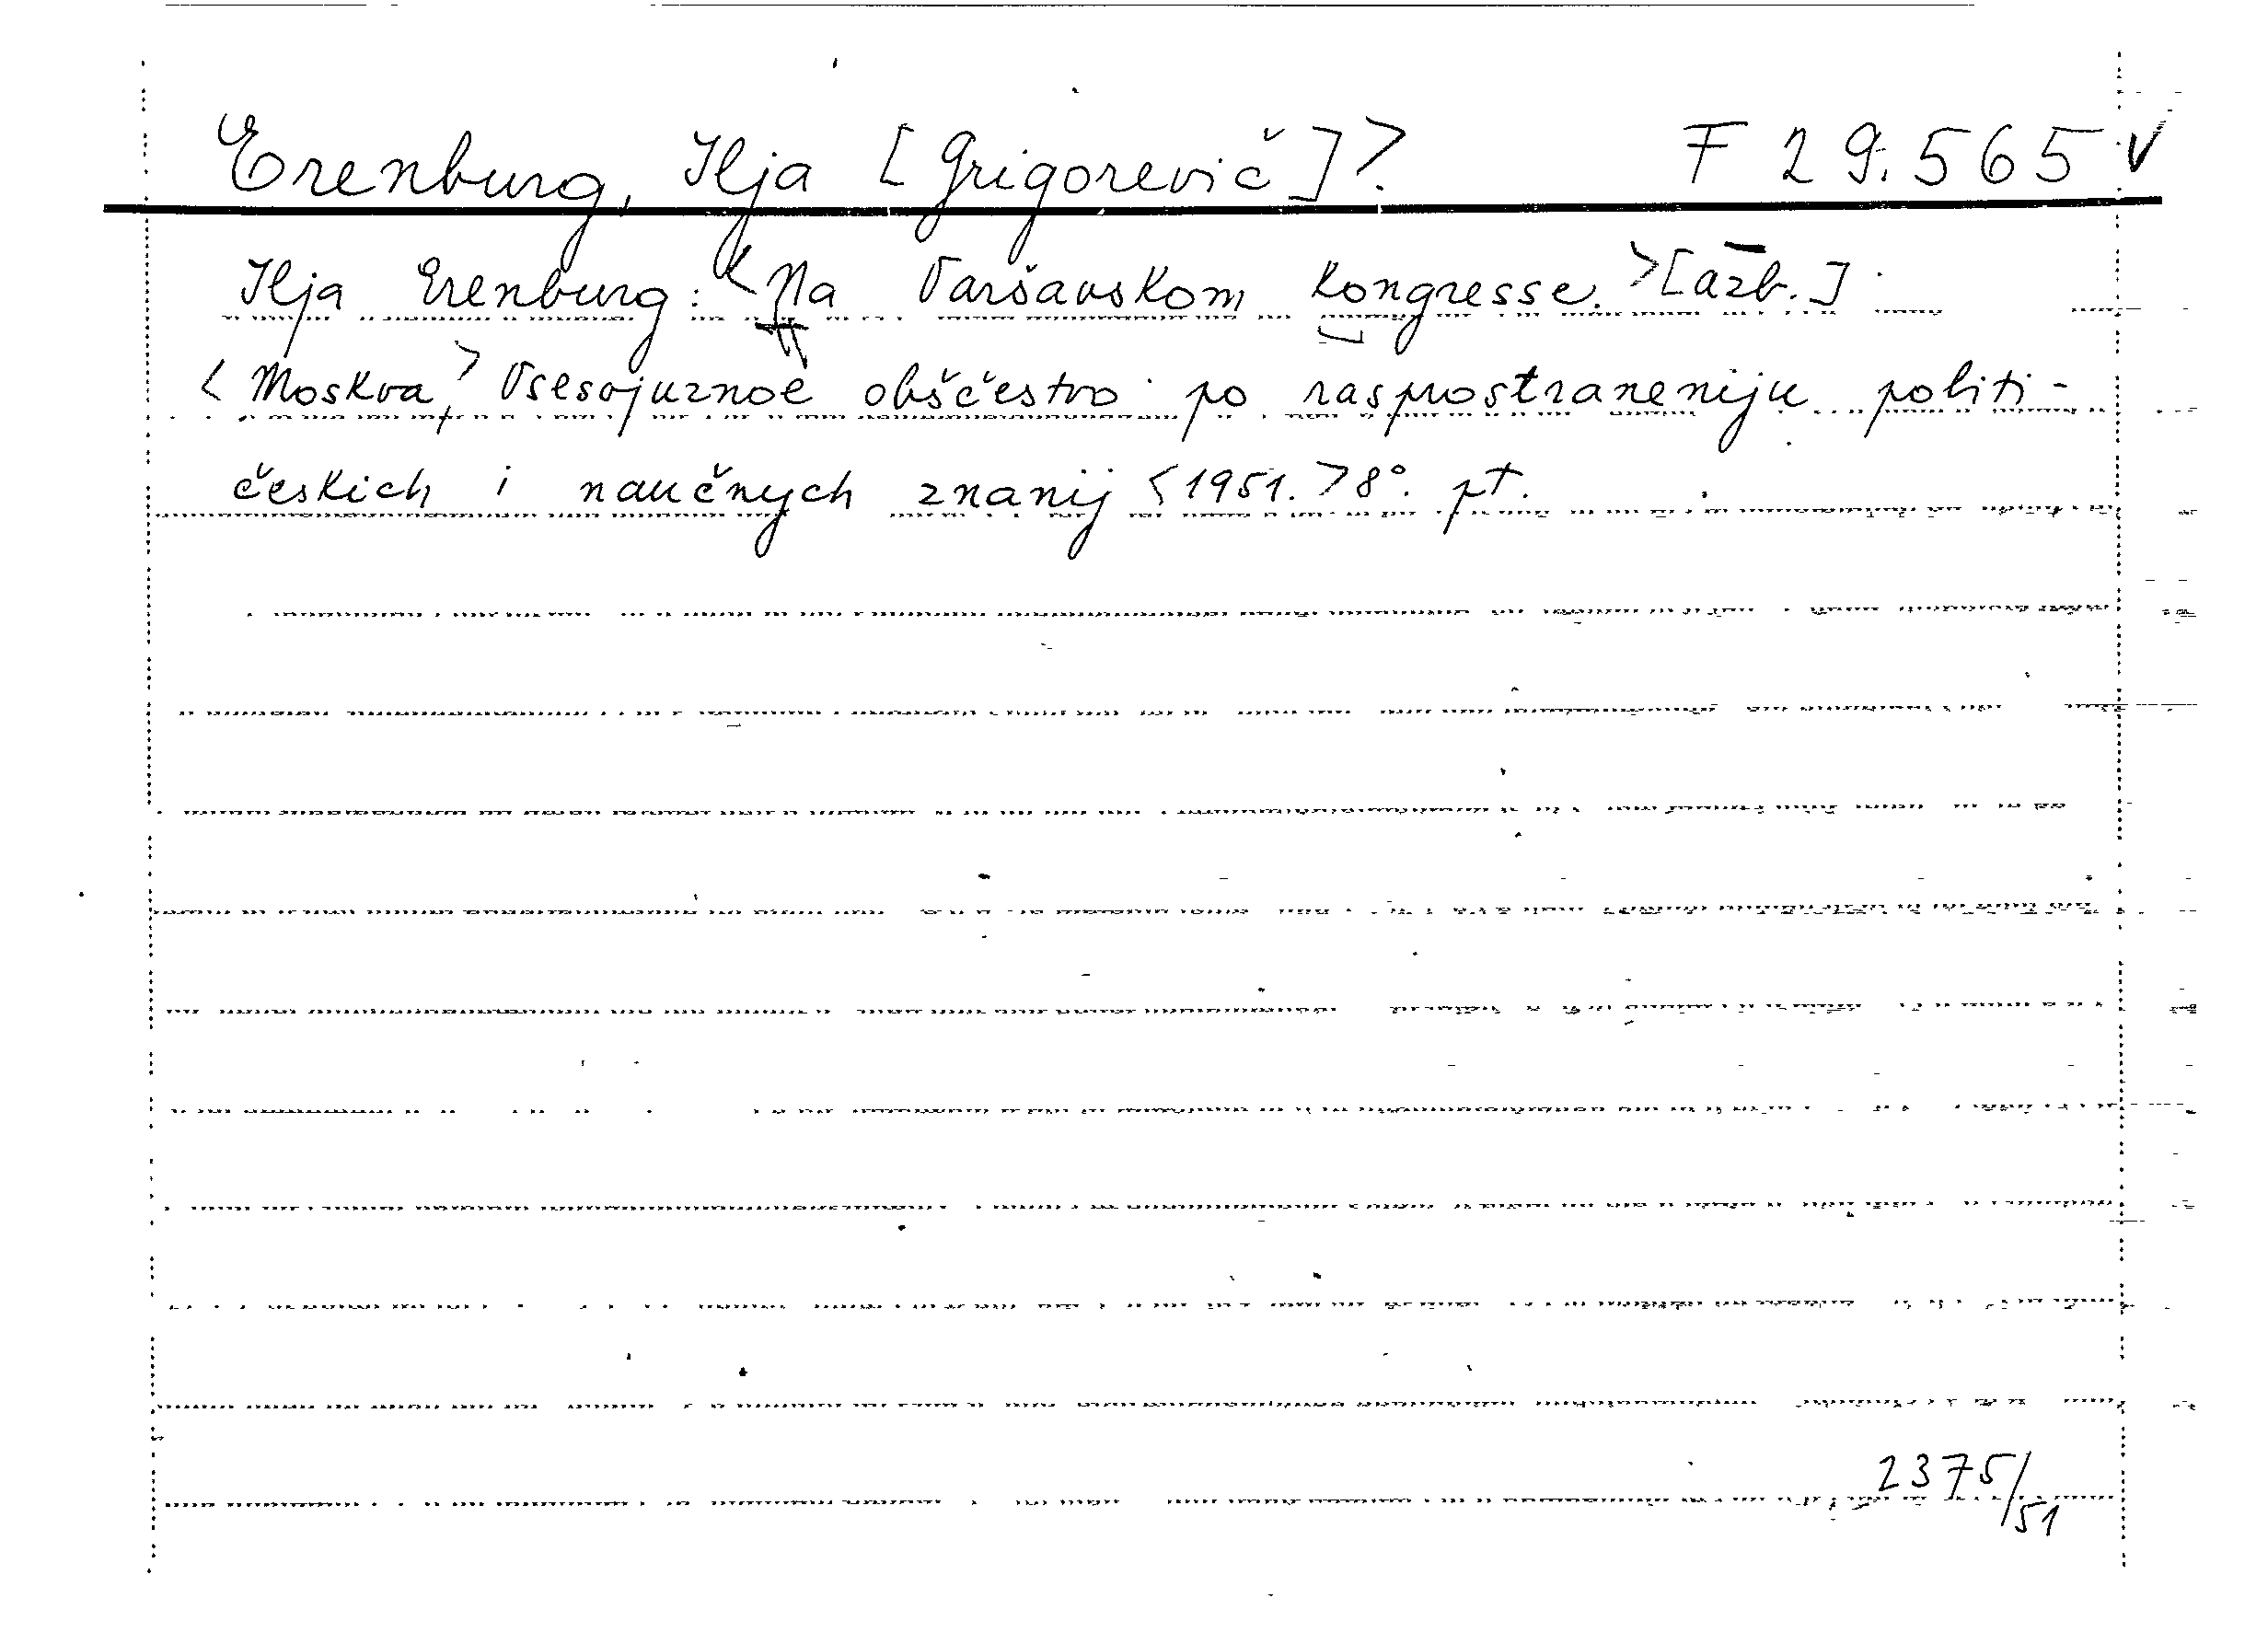 Erenburg, Ilja [Grigorevič]>. F 29.565 √
Ilja Erenburg: <Na Varšavskom Kongresse.> [azb.]
<Moskva,> Vsesojuznoe obščestvo po rasprostraneniju politi-
českich i naučnych znanij <1951.> 8°. pt.
2375/51